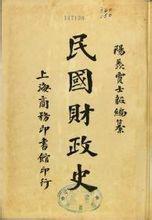 陽羨賈士毅編纂
民國財政史
上海商務印書館印行